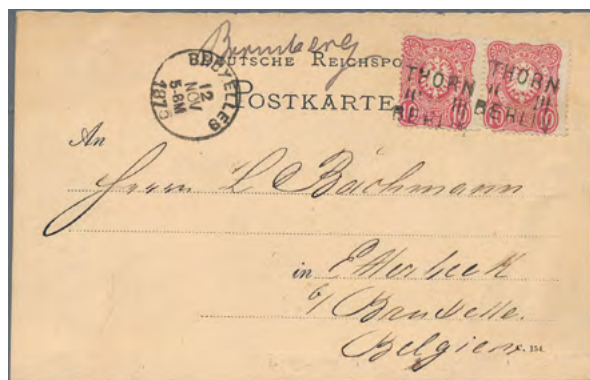 Bromberg
DEUTSCHE REICHSPO
POSTKARTE
BRUXELLES
12
NOV
5-8M
1875
THORN
BERLIN
THORN
BERLIN
10
10
An
Herrn L Bachmann
in Etterbeek
b/ Bruxelle.
Belgien
C. 154.